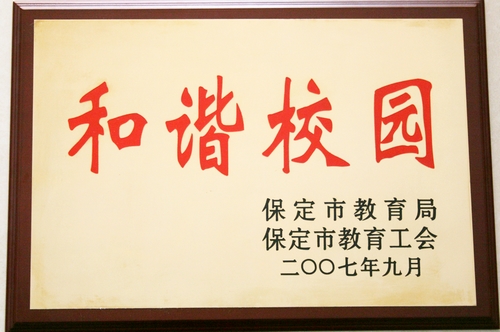 和谐校园
保定市教育局
保定市教育工会
二〇〇七年九月